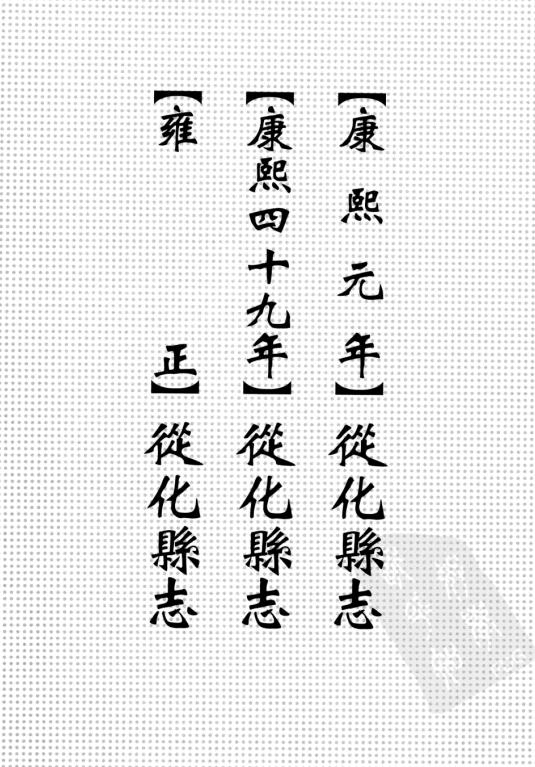 【康熙元年】從化縣志
【康熙四十九年】從化縣志
【雍正】從化縣志